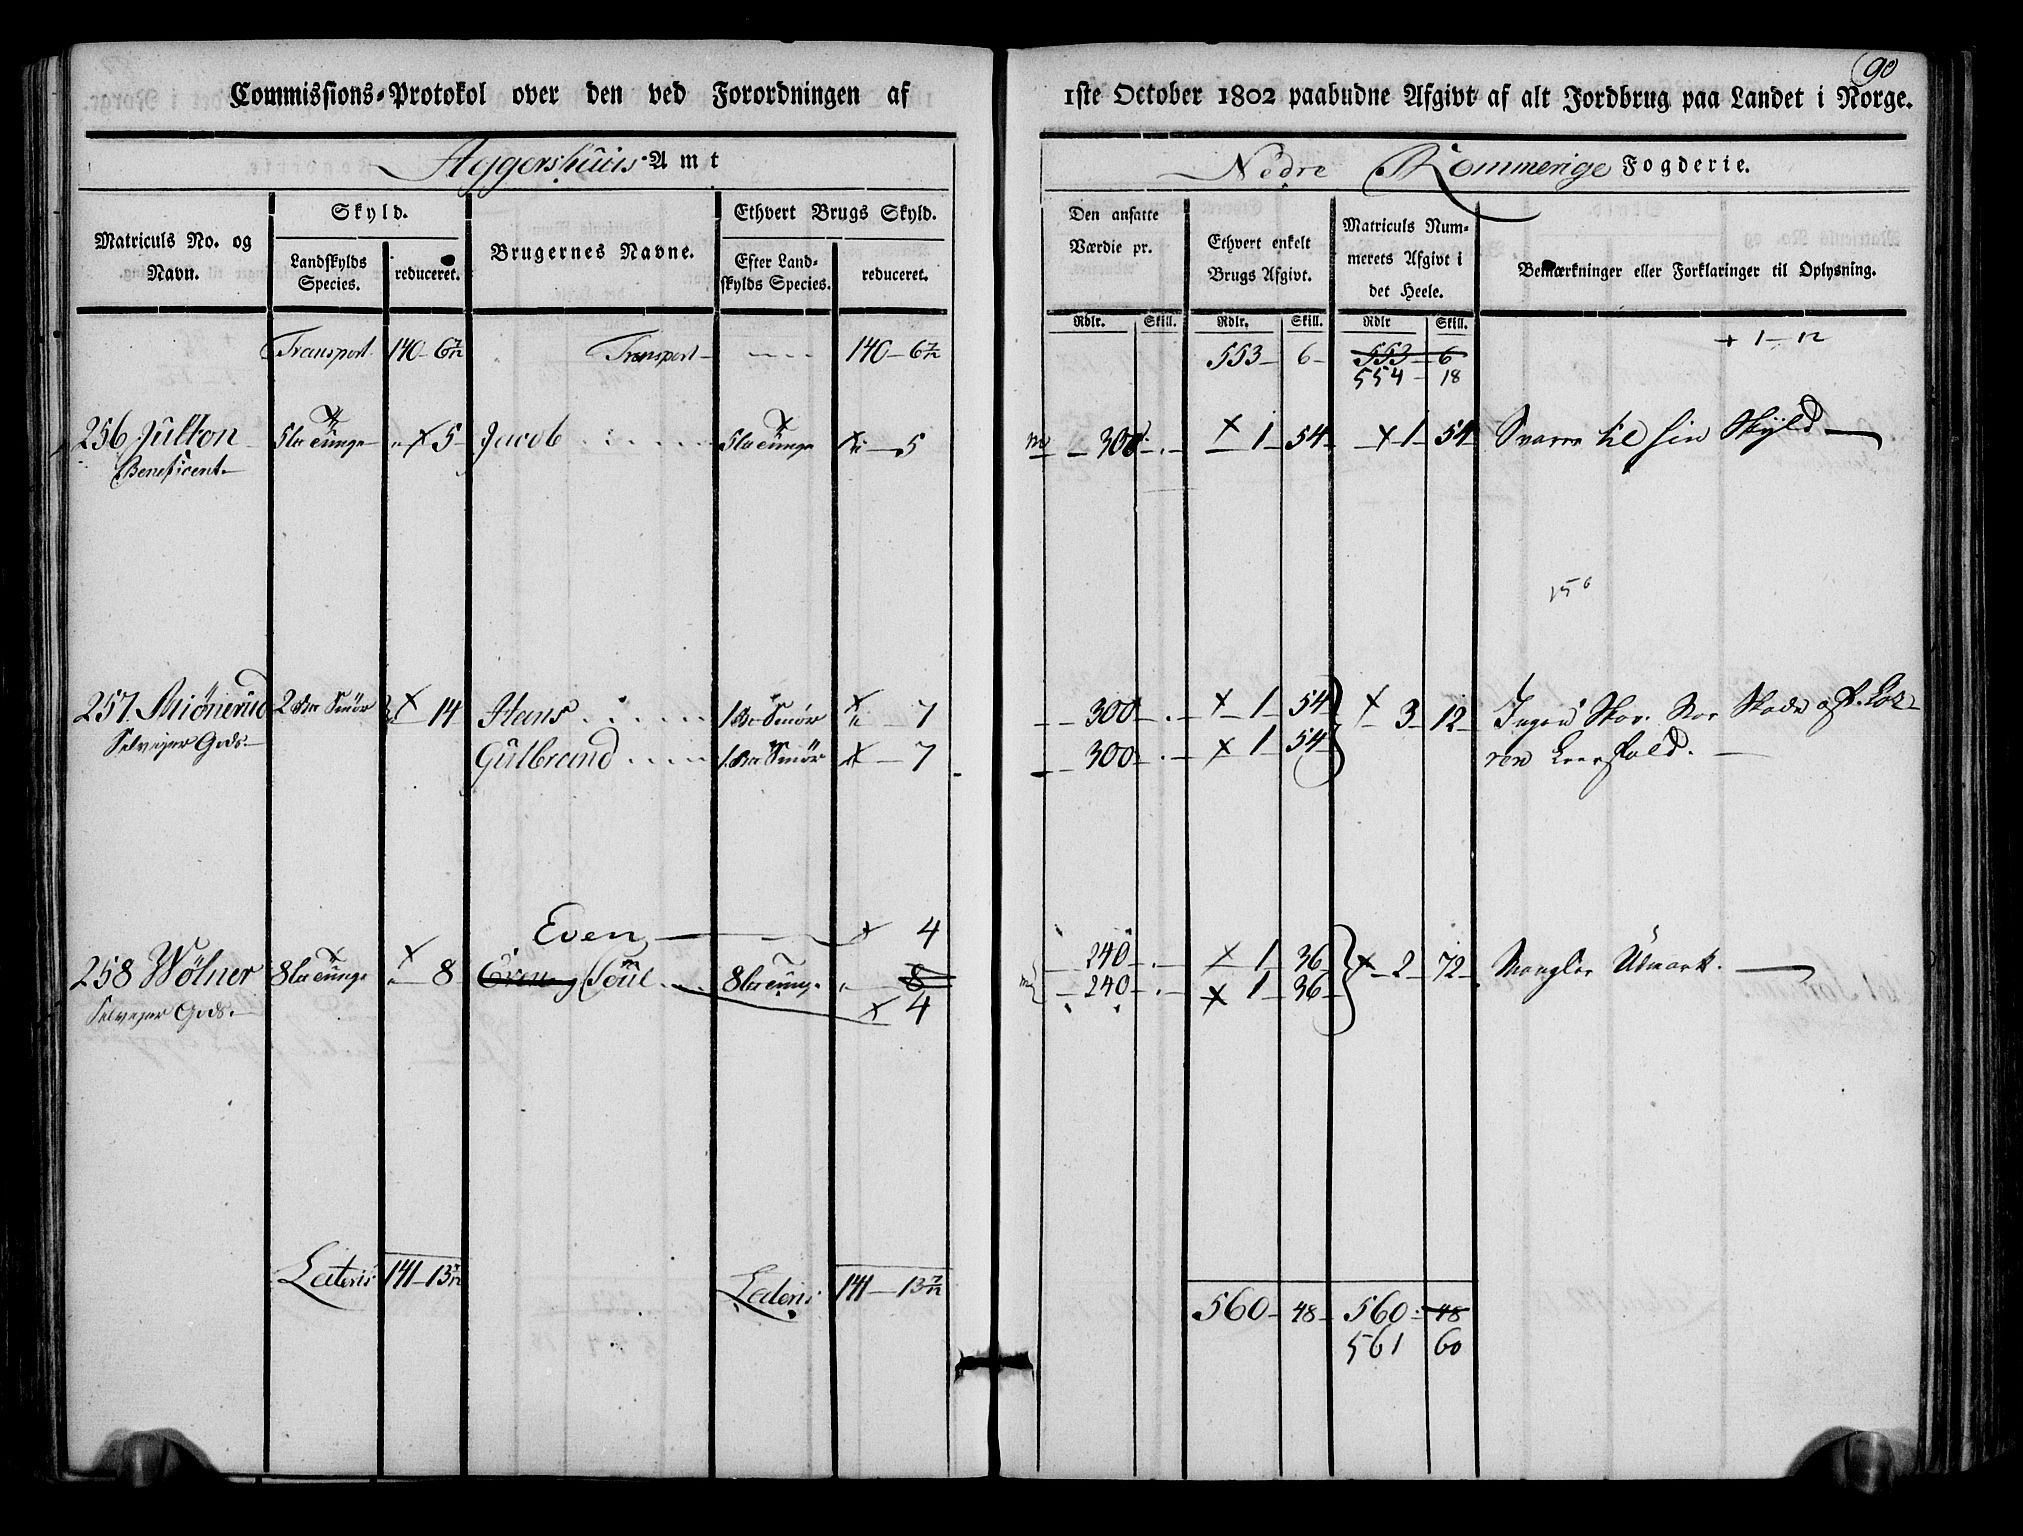 90
Commissions-Protokol over den ved Forordningen af 1ste October 1802 paabudne Afgivt af alt Jordbrug paa Landet i Norge.
Aggershuus Amt Nedre Rommerige Fogderie.
Matriculs No. og Navn.
Skyld.
Landskylds Species.
reduceret.
Brugernes Navne.
Ethvert Brugs Skyld.
Efter Landskylds Species.
reduceret.
Den ansatte Værdie pr.
Ethvert enkelt Brugs Afgivt.
Matriculs Nummerets Afgivt i det Heele.
Bemærkninger eller Forklaringer til Oplysning.
Rdlr. Skill. Rdlr. Skill. Rdlr Skill.
+ 1 - 12
Transport 140 - 6 7/12 Transport 140 - 6 7/12 553 - 6 - 553 - 6
554 - 18
256 Julton 5 Tunge x 5 Jacob 5 Tunge x 5 300 - x 1 54 - x 1 54 Svarer til sin Skyld
Beneficent
156
257. Miönerud 2 Smör x 14 Hans 1 Smör x 7 300 - x 1 54 x 3 12 Ingen Skov. Stor Skade af
Selvejer Gods Gulbrand 1 Smör x 7 300 - x 1 54
Even x 4
258 Wölner 8 Tunge x 8 Even 8 Tunge 8 240 - x 1 36 x 2 72 Mangler Udmark.
Selvejer Gods. x 4 240 - x 1 36
Lateris 141 - 13 7/12 Lateris 141 - 13 7/12 560 - 48 - 560 - 48
561 60